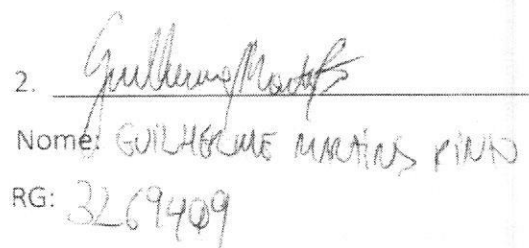 2. Guilherme Martins
Nome: GUILHERME MARTINS PINTO
RG: 3269409